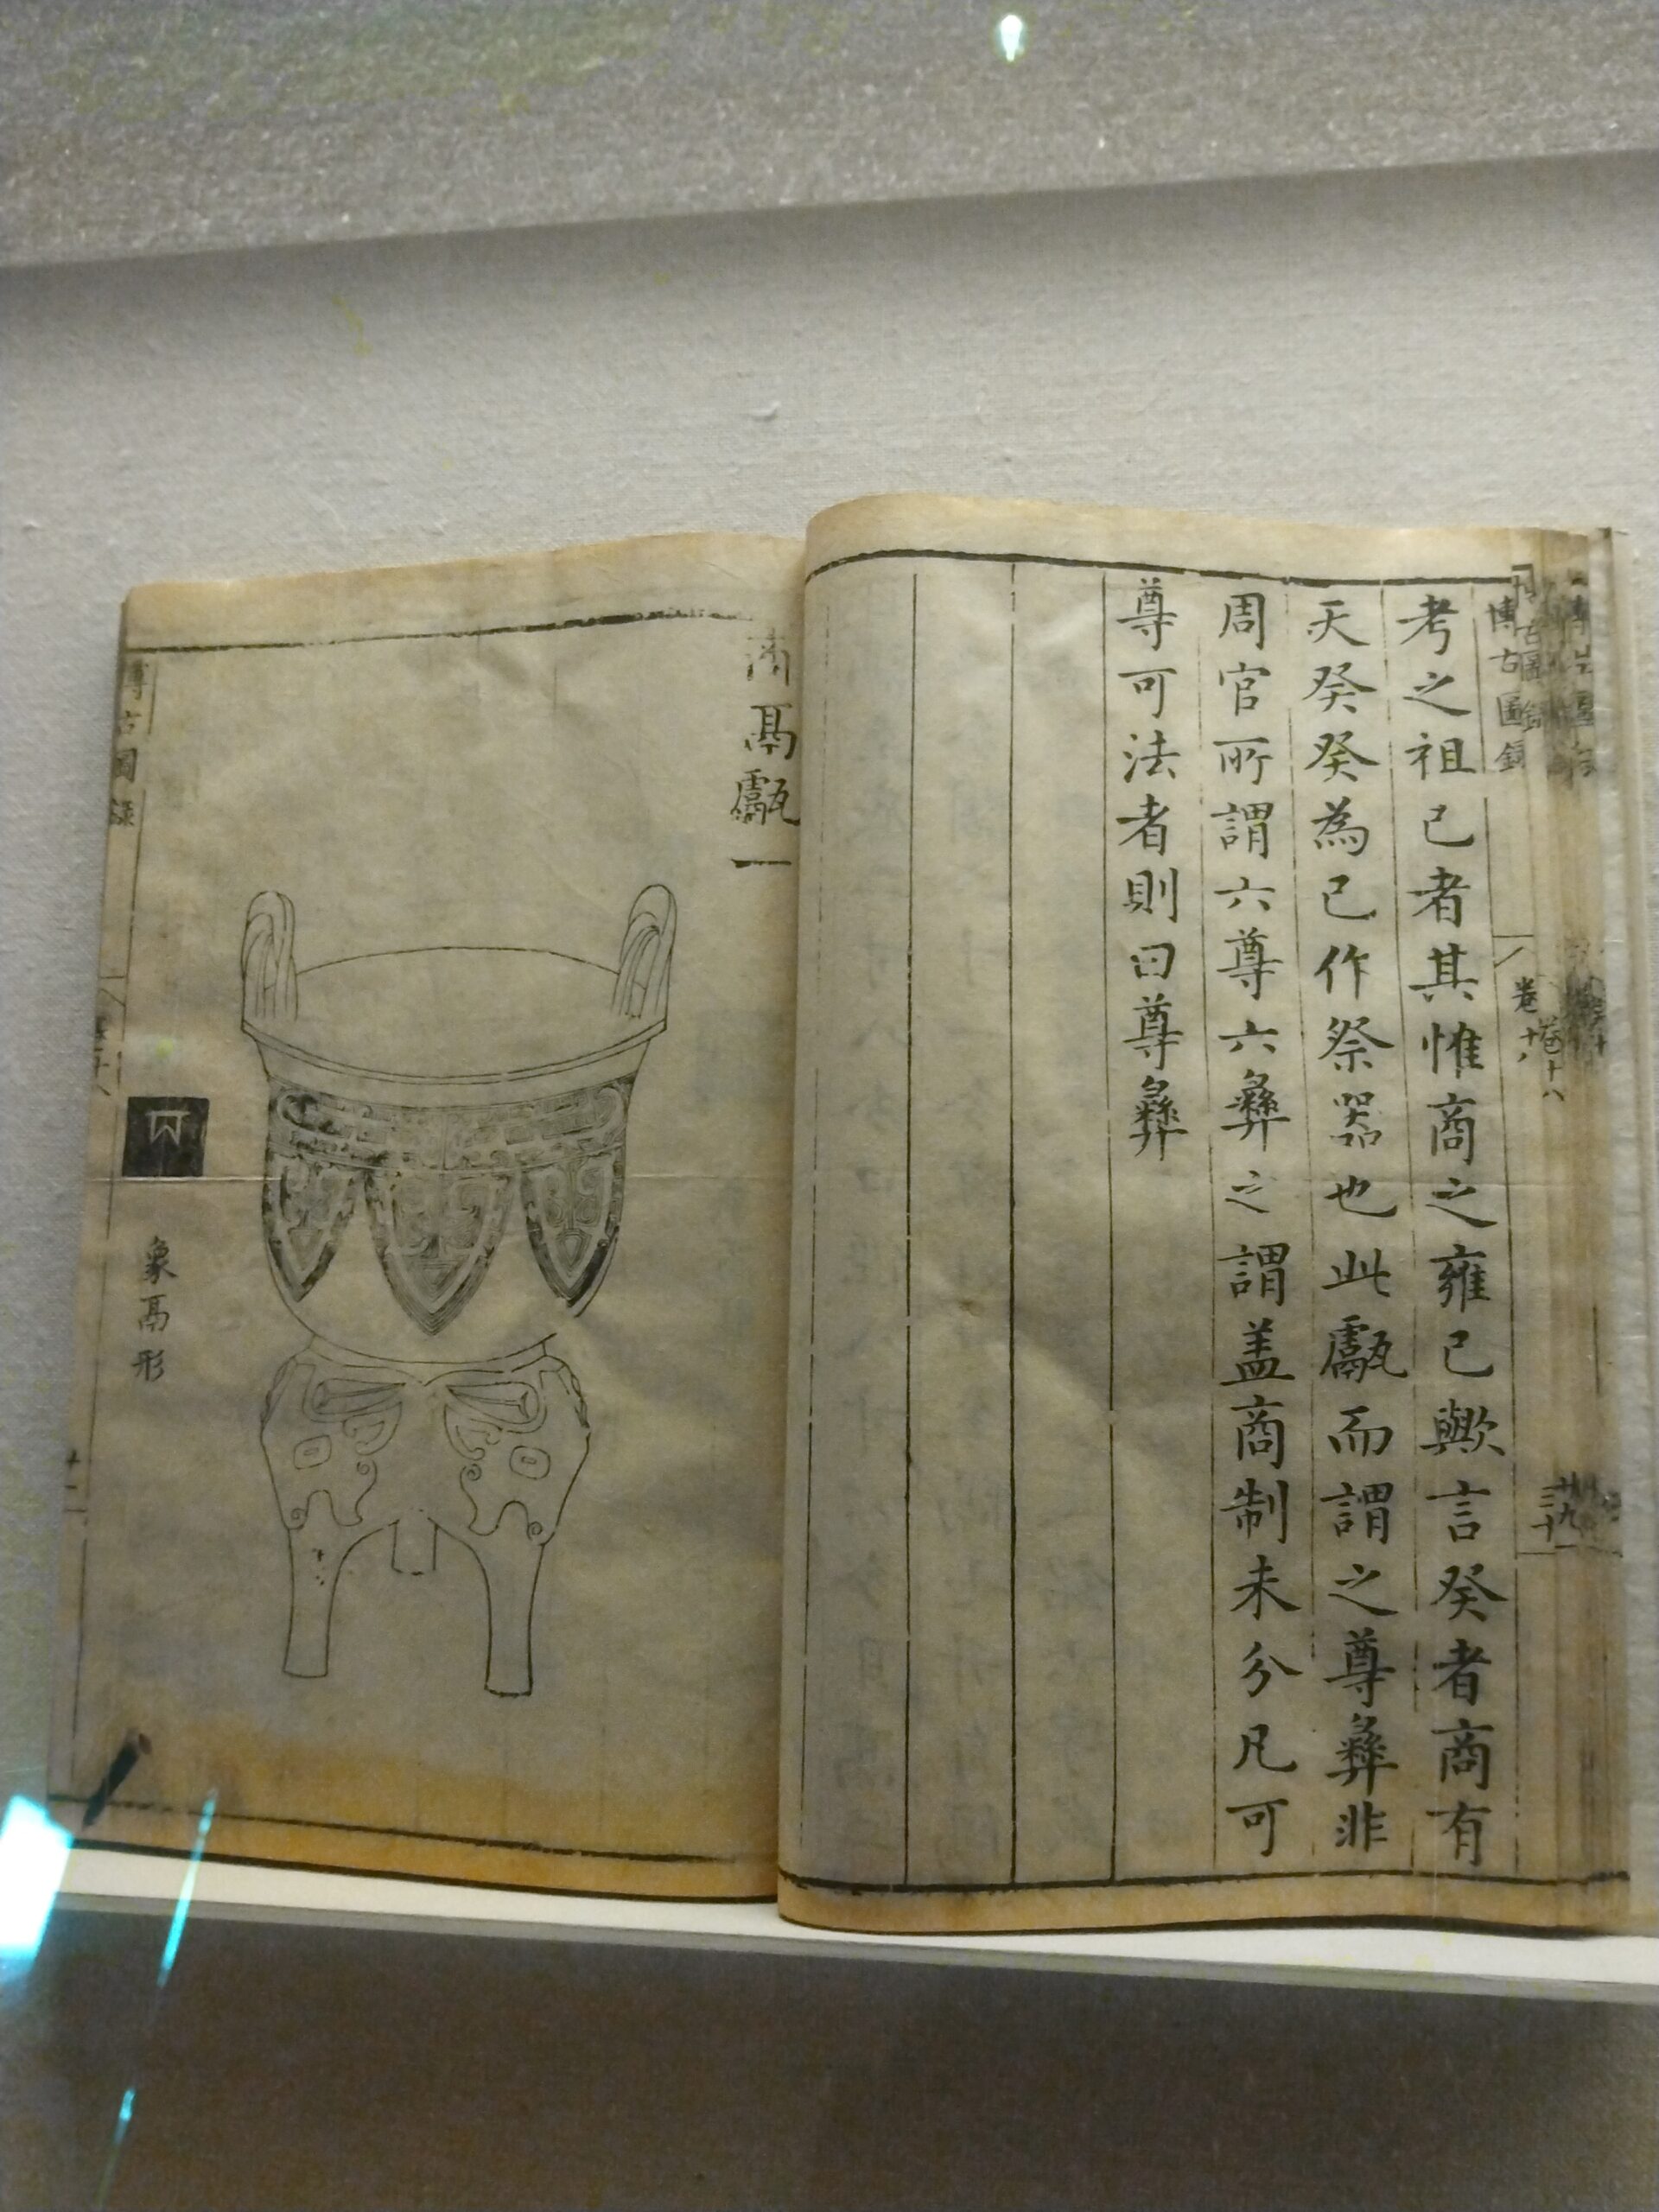 考之祖已者其惟商之雍已歟言癸者商有
天癸癸為已作祭器也此甗而謂之尊彝非
周官所謂六尊六彝之謂盖商制未分凡可
尊可法者則曰尊彝
博古圖錄
卷十八
三十
卷十八
廿九
商鬲甗一
象鬲形
博古圖錄